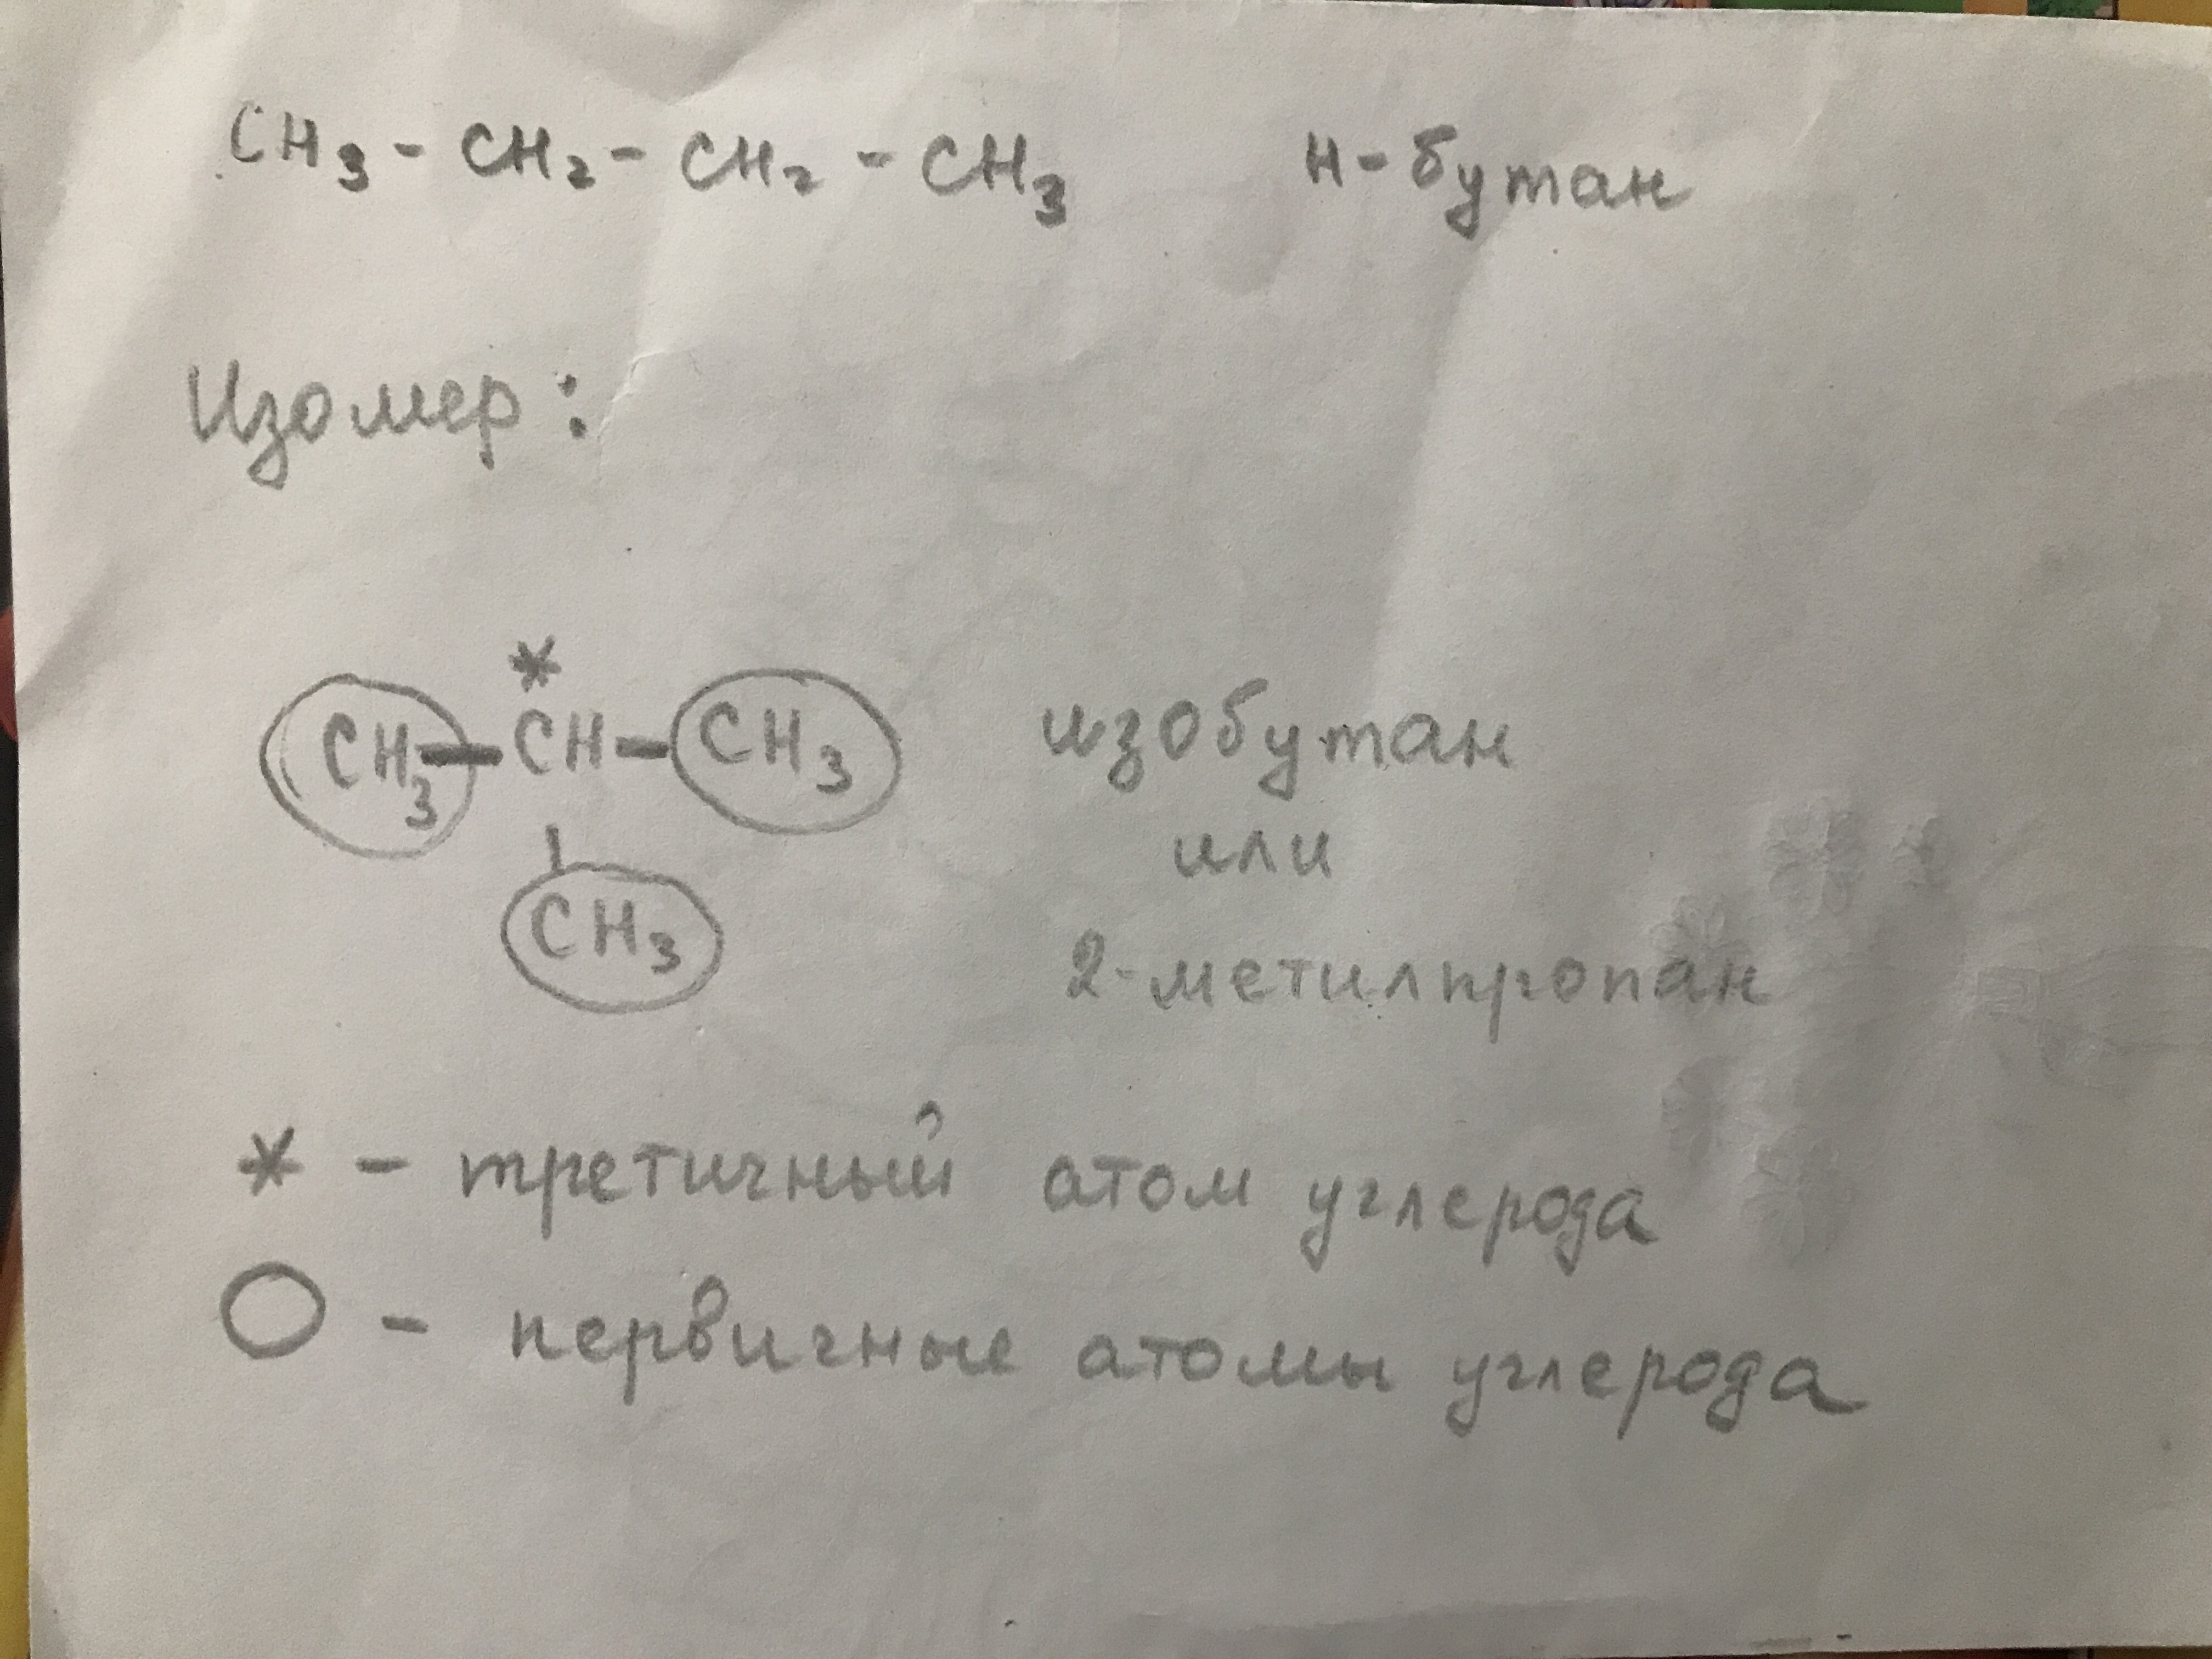 CH₃ - CH₂ - CH₂ - CH₃ н-бутан
Изомер:
*
CH₃ — CH — CH₃ изобутан
| или
CH₃ 2-метилпропан
* - третичный атом углерода
○ - первичные атомы углерода